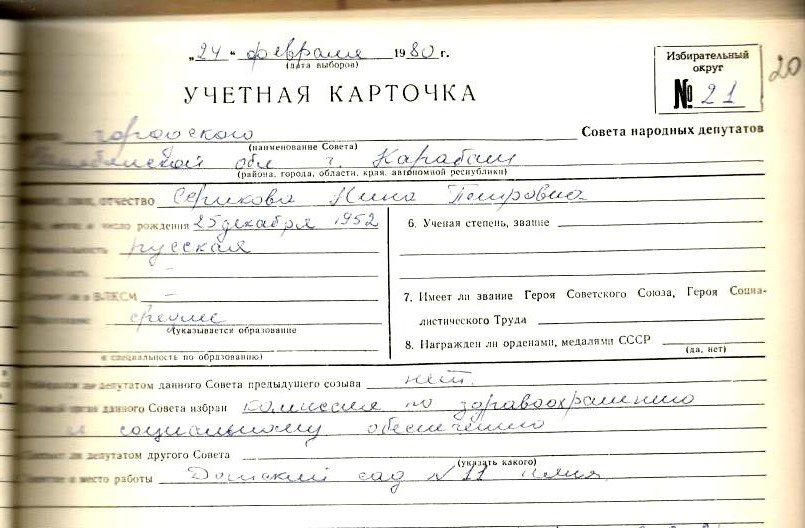 „24“ февраля 1980 г.
(дата выборов)
Избирательный
округ
№ 21
20
УЧЕТНАЯ КАРТОЧКА
городского Совета народных депутатов
(наименование Совета)
обл г. Карабаш
(района, города, области, края, автономной республики)
отчество Серикова Нина Петровна
число рождения 25 декабря 1952
русская
–
в ВЛКСМ –
среднее
(указывается образование
и специальность по образованию)
6. Ученая степень, звание
7. Имеет ли звание Героя Советского Союза, Героя Социа-
листического Труда
8. Награжден ли орденами, медалями СССР
(да, нет)
ли депутатом данного Совета предыдущего созыва нет.
данного Совета избран комиссия по здравоохранению
и социальному обеспечению
ли депутатом другого Совета
(указать какого)
и место работы Детский сад N 11 няня